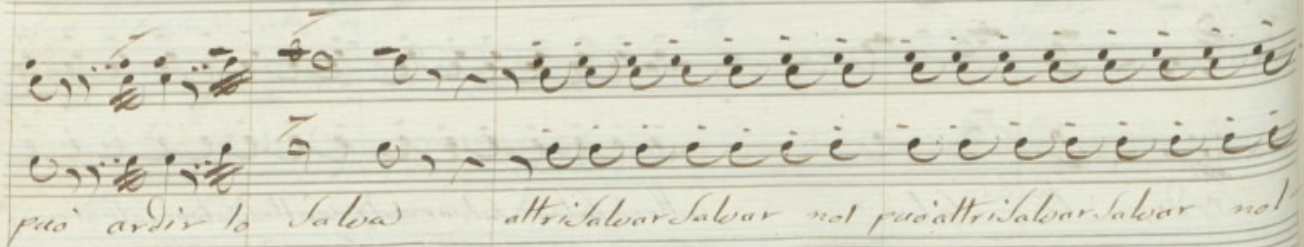 può ardir lo salva altri salvar salvar nol può altri salvar salvar nol